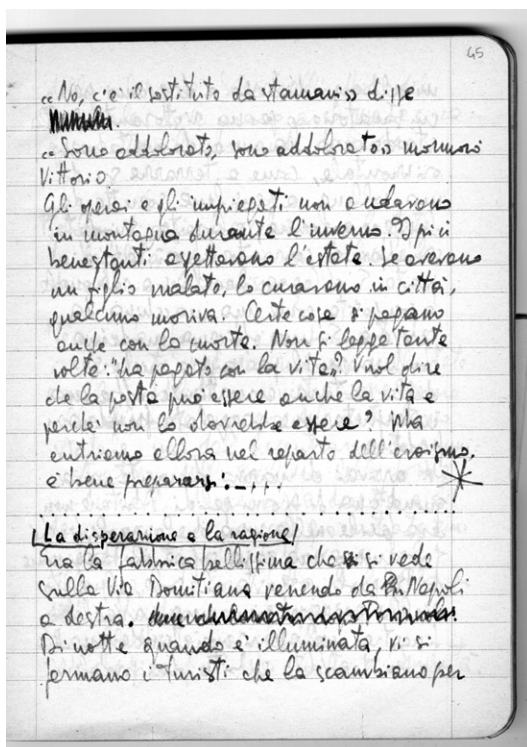 45
«No, c'è il sostituto da stamani» disse
«Sono addolorato, sono addolorato» mormorò
Vittorio.
Gli operai e gli impiegati non andavano
in montagna durante l'inverno. I più
benestanti aspettavano l'estate. Se avevano
un figlio malato, lo curavano in città,
qualcuno moriva. Certe cose si pagano
anche con la morte. Non si legge tante
volte: "ha pagato con la vita"? Vuol dire
che la posta può essere anche la vita e
perché non lo dovrebbe essere? Ma
entriamo allora nel reparto dell'eroismo.
è bene prepararsi:
La disperazione e la ragione
Era la fabbrica bellissima che si vede
sulla Via Domitiana venendo da Napoli
a destra.
Di notte quando è illuminata, vi si
fermano i turisti che la scambiano per